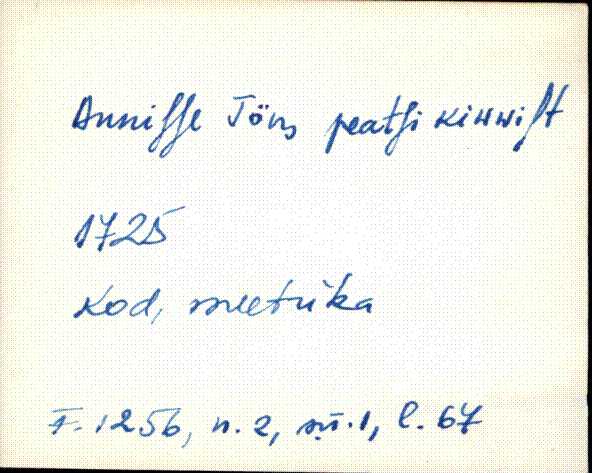 Annisse Jöns peatsi kiwwist
1725
Kod, meetrika
F. 1256, n. 2, sü. 1, l. 67